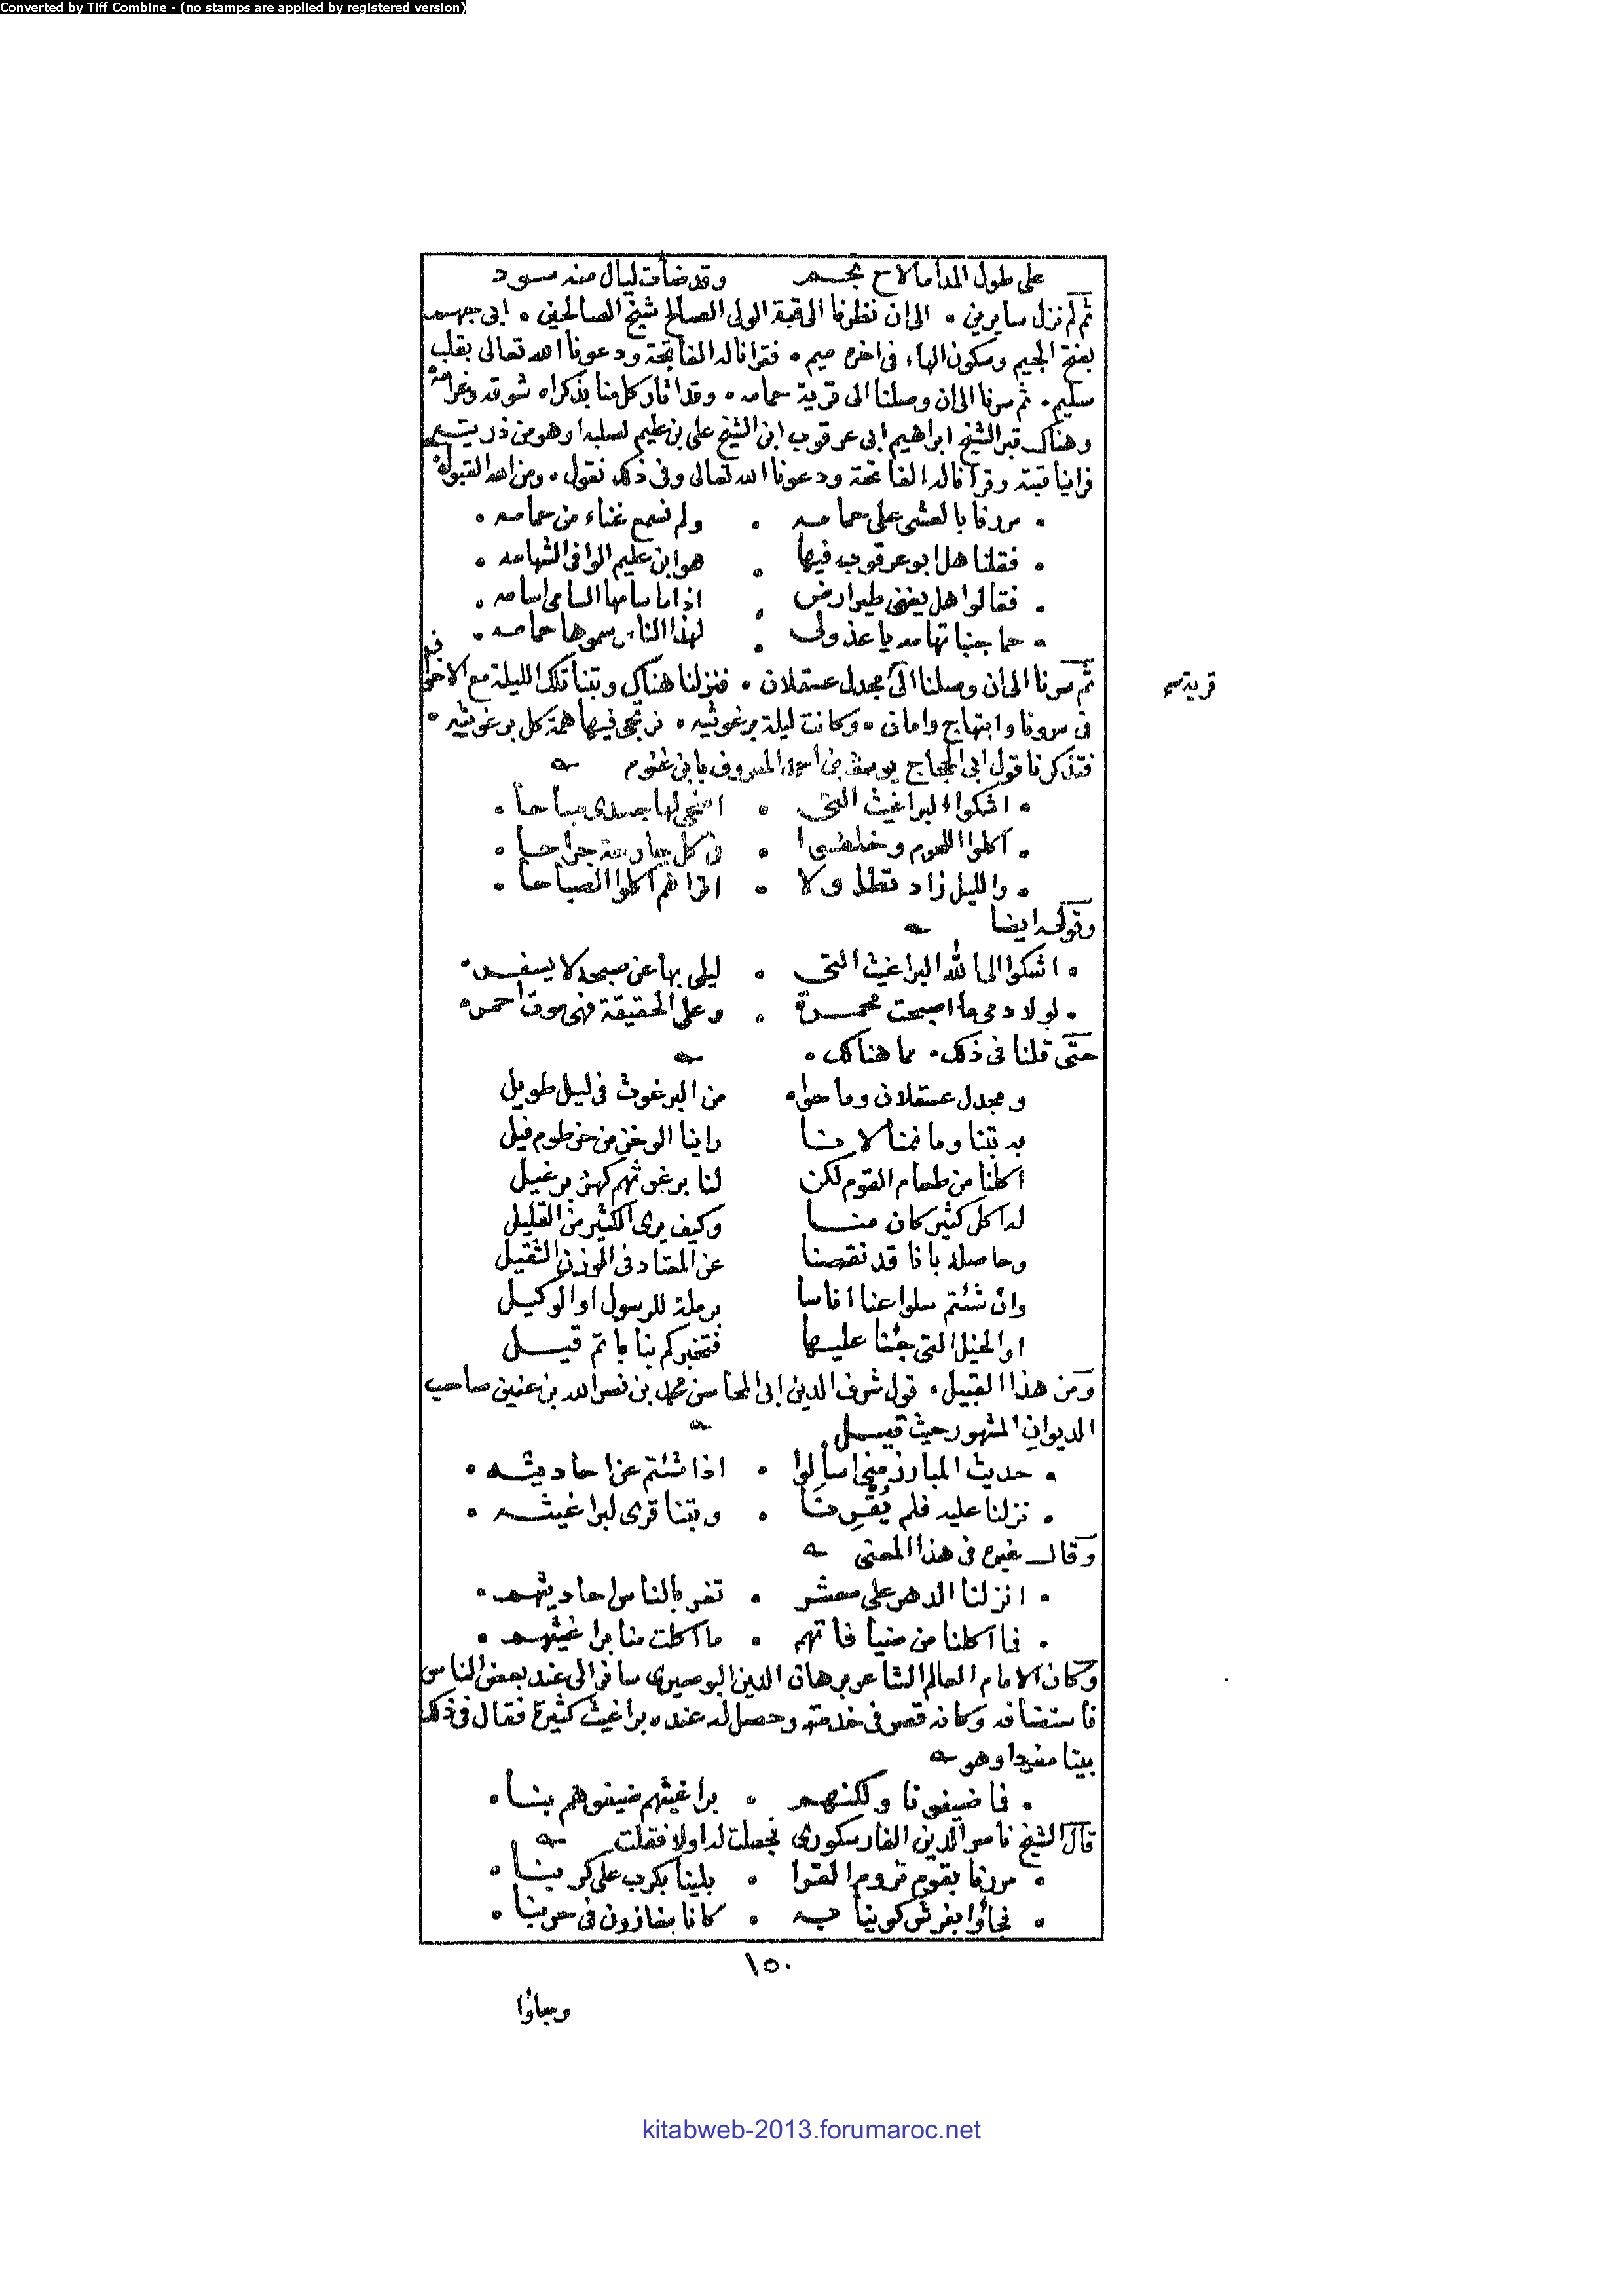 Converted by Tiff Combine - (no stamps are applied by registered version)
على طول المدا مالاح نجم وقد ضأت ليال منه سود
ثم لم نزل سايرين • الى ان نظرنا الى قبة الولى الصالح شيخ الصالحين • ابى جهم
بفتح الجيم وسكون الهاء فى اخره ميم • فقرانا له الفاتحة ودعونا الله تعالى بقلب
سليم • ثم سرنا الى ان وصلنا الى قرية حمامه • وقد اثار كل منا بذكراه شوقه وغرامه
وهناك قبر الشيخ ابراهيم ابى عرقوب ابن الشيخ على بن عليم لصلبه او هو من ذريته
فراينا قبته وقرآنا له الفاتحة ودعونا الله تعالى وفى ذلك نقول • ومن الله القبول
• مررنا بالعشى على حمامه • ولم نسمع غناء من حمامه •
• فقلنا هل ابو عرقوب فيها • هو ابن عليم الوافى الشهامه •
• فقالوا هل يغنى طير ارض • اذا ما سامها السامى اسامه •
• حما جنباتها مه يا عذولى • لهذا الناس سموها حمامه •
ثم سرنا الى ان وصلنا الى مجدل عسقلان • فنزلنا هناك وبتنا تلك الليلة مع الاخوان
قرية
فى سرورنا وابتهاج وامانى • وكانت ليلة برغوثيه • نرتجى فيها همة كل برغوثيه •
فتذكرنا قول ابى الحجاج يوسف بن احمد المعروف بابن غنوم
• اشكوا البراغيث التى • اضحى لها جسدى مباحا •
• اكلوا اللحوم وخلفوا • فى كل جارحة جراحا •
• والليل زاد تطاولا • اتراهم اكلوا الصباحا •
وقوله ايضا
• اشكوا الى الله البراغيث التى • ليلى بها عن صبحه لا يسفر •
• لولا دمى ما اصبحت محمرة • وعلى الحقيقة فهى موت احمر •
حتى قلنا فى ذلك • مما هنالك •
ومجدل عسقلان وما حواه من البرغوث فى ليل طويل
به بتنا وما نمنا لانا راينا الوخز من خرطوم فيل
اكلنا من طعام القوم لكن لنا برغوثهم كهزبر غيل
له اكل كثير كان منا وكيف يرى الكثير من القليل
وحاصله بانا قد نقصنا عن المعتاد فى الوزن الثقيل
وان شئتم سلوا عنا اناسا برملة للرسول او الوكيل
او الخيل التى جئنا عليها فتخبركم بنا ما تم قيل
ومن هذا القبيل • قول شرف الدين ابى المحاسن محمد بن نصر الله بن عنين صاحب
الديوان المشهور حيث قيل
• حديث المبارز منى اسألوا • اذا شئتم عن احاديثه •
• نزلنا عليه فلم يُقْرِنَا • وبتنا قرى لبراغيثه •
وقال غيره فى هذا المعنى
• انزلنا الدهر على معشر • تغر بالناس احاديثهم •
• فما اكلنا من ضيافاتهم • ما اكلت منا براغيثهم •
وكان الامام العالم الشاعر برهان الدين البوصيرى سافر الى عند بعض الناس
فاستضافه وكانه قصر فى خدمته وحصل له عنده براغيث كثيرة فقال فى ذلك
بيتا مفردا وهو
• فما ضيفونا ولكنهم • براغيثهم ضيفوهم بنا •
قال الشيخ ناصر الدين الفارسكورى فجعلت له اولا فقلت
• مررنا بقوم نروم القرا • بلينا بكرب على كربنا •
• فجاؤا بفرش كوينا به • كانا مغازون فى حربنا •
١٥٠
وجاؤا
kitabweb-2013.forumaroc.net